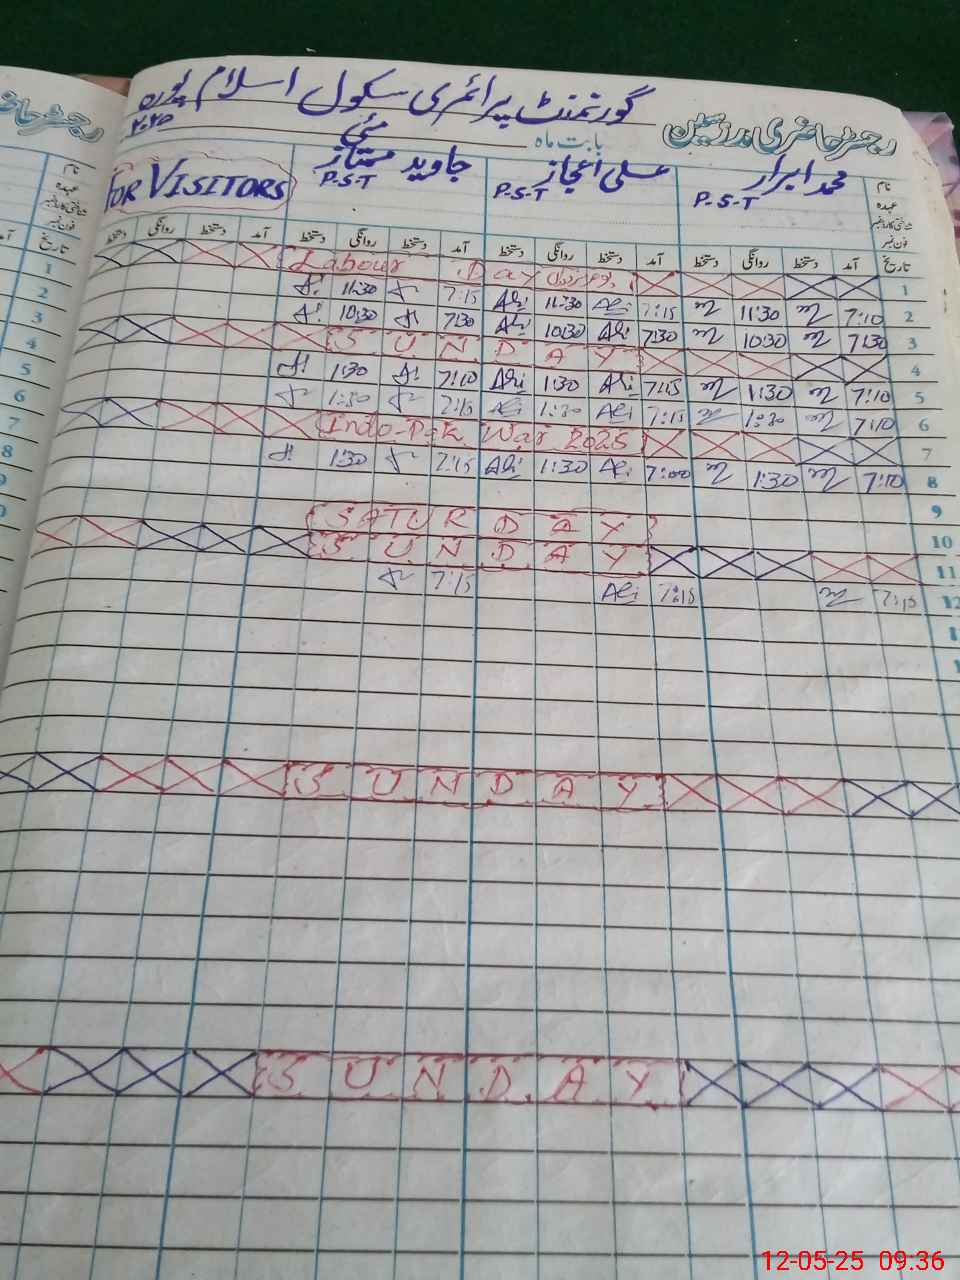 گورنمنٹ پرائمری سکول اسلام پورہ
رجسٹر حاضری مدرسین
بابت ماہ
مئی
۲۰۲۵
نام
عہدہ
شناختی کارڈ نمبر
فون نمبر
محمد ابرار
P.S.T
علی اعجاز
P.S.T
جاوید ممتاز
P.S.T
FOR VISITORS
تاریخ آمد دستخط روانگی دستخط آمد دستخط روانگی دستخط آمد دستخط روانگی دستخط آمد دستخط روانگی دستخط
1 Labour Day
2 7:10 11:30 7:15 Ali 11:30 Ali 7:15 11:30
3 7:30 10:30 7:30 Ali 10:30 Ali 7:30 10:30
4 SUNDAY
5 7:10 1:30 7:15 Ali 1:30 Ali 7:10 1:30
6 7:10 1:30 7:15 Ali 1:30 Ali 7:15 1:30
7 Indo-Pak War 2025
8 7:10 1:30 7:00 Ali 1:30 Ali 7:15 1:30
9
10 SATURDAY
11 SUNDAY
12 7:15 7:15 Ali 7:15
SUNDAY
SUNDAY
12-05-25 09:36